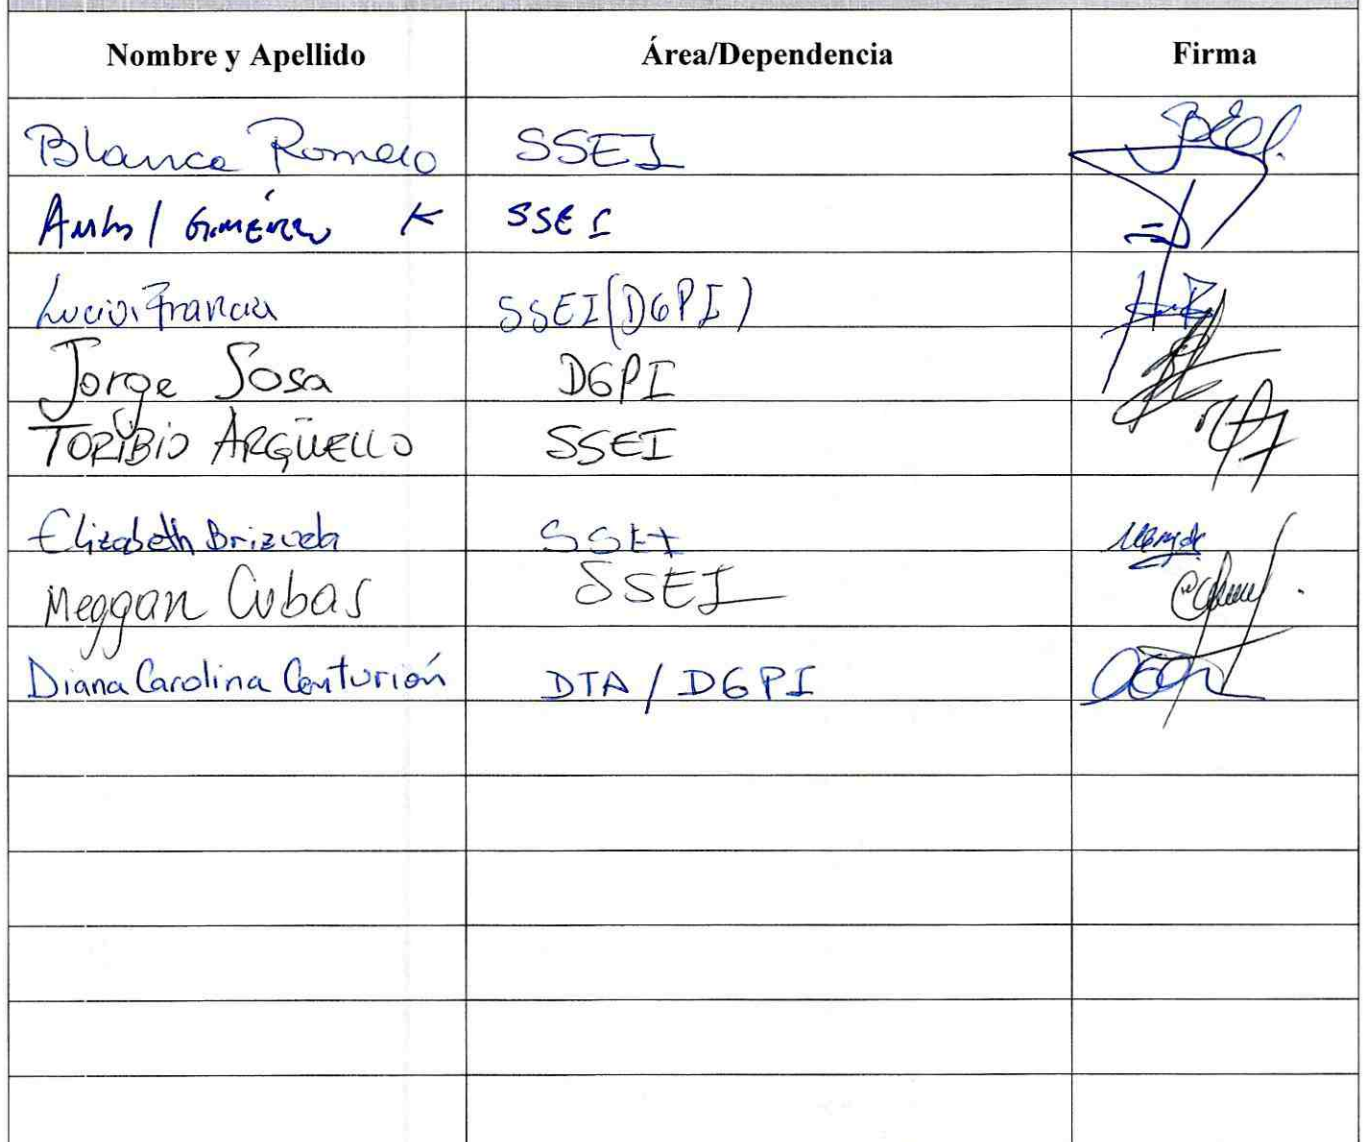 Nombre y Apellido Área/Dependencia Firma
Blanca Romero SSEI
Giménez K SSEI
Lucia Franco SSEI(DGPI)
Jorge Sosa DGPI
TORIBIO ARGÜELLO SSEI
Elizabeth Brizuela SSEI
Meggan Cubas SSEI
Diana Carolina Centurión DTA / DGPI